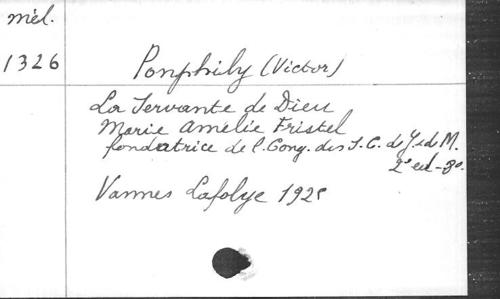 mél.
1326
Pomphily (Victor)
La Servante de Dieu
Marie Amélie Fristel
fondatrice de l. Cong. des S. C. de J. et de M.
2e ed - 8o.
Vannes Lafolye 1925